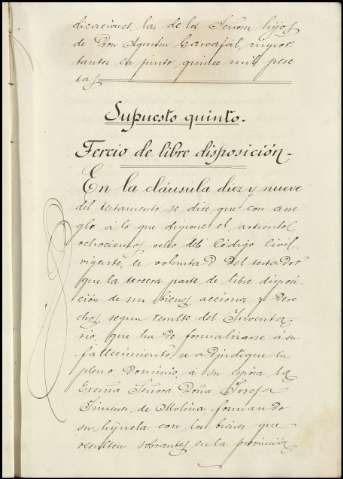 dicaciones, las de los Señores hijos
de Don Agustin Carvajal, impor-
tantes en junto quince mil pese-
tas
Supuesto quinto.
Tercio de libre disposición.
En la cláusula diez y nueve
del testamento, se dice que con arre-
glo á lo que dispone el articulo
ochocientos ocho del Código Civil
vigente, es voluntad del testador
que la tercera parte de libre disposi-
ción de sus bienes, acciones y dere-
chos, segun resulte del Inventa-
rio que ha de formalizarse á su
fallecimiento se adjudique en
pleno dominio, a su esposa la
Excma Señora Doña Josefa
Jimenez de Molina, formando
su hijuela con los bienes que
resulten sobrantes en la provincia